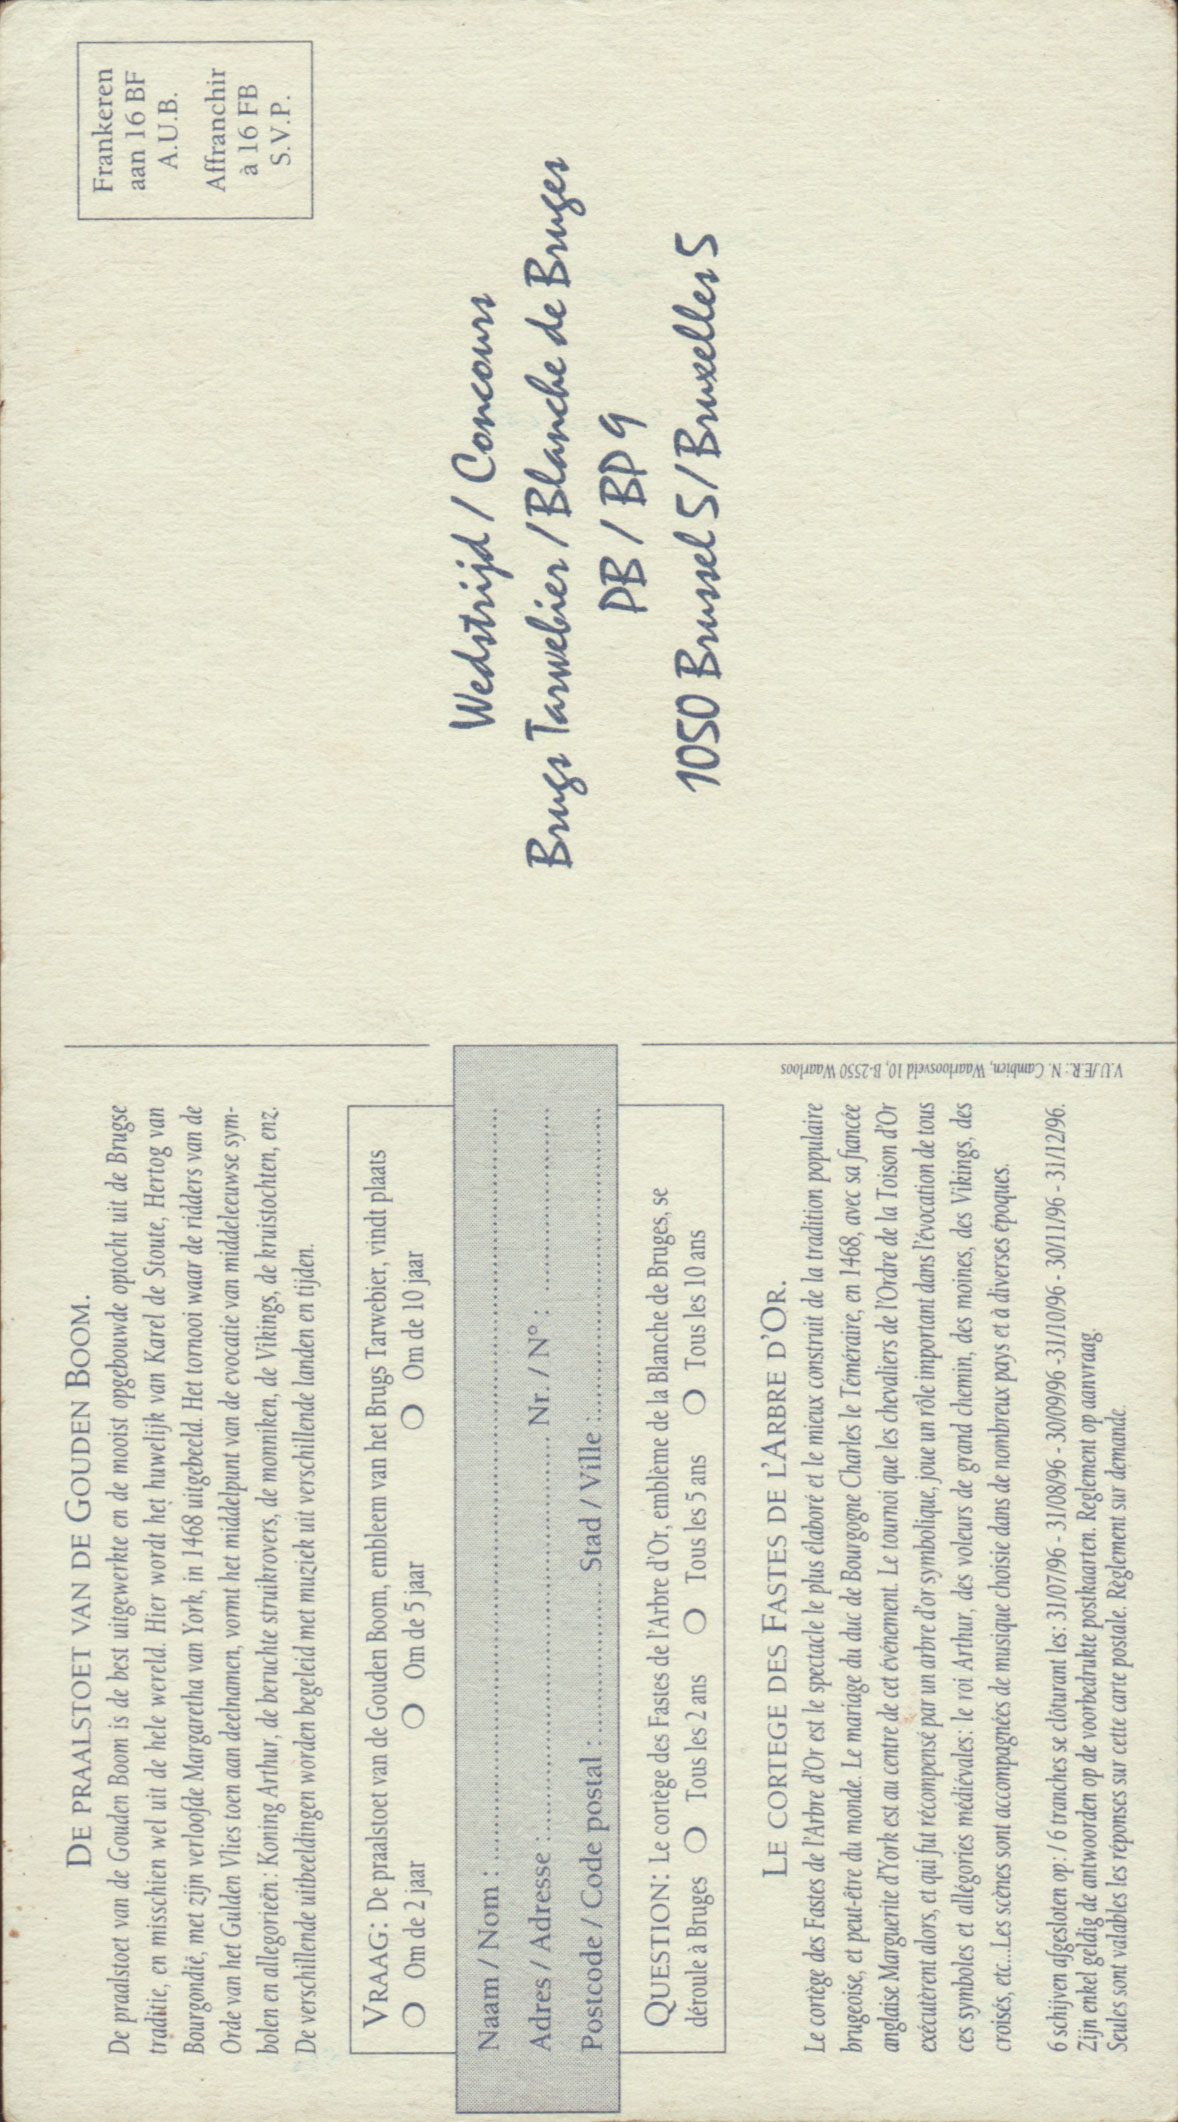 DE PRAALSTOET VAN DE GOUDEN BOOM.
De praalstoet van de Gouden Boom is de best uitgewerkte en de mooist opgebouwde optocht uit de Brugse
traditie, en misschien wel uit de hele wereld. Hier wordt het huwelijk van Karel de Stoute, Hertog van
Bourgondië, met zijn verloofde Margaretha van York, in 1468 uitgebeeld. Het tornooi waar de ridders van de
Orde van het Gulden Vlies toen aan deelnamen, vormt het middelpunt van de evocatie van middeleeuwse sym-
bolen en allegorieën: Koning Arthur, de beruchte struikrovers, de monniken, de Vikings, de kruistochten, enz.
De verschillende uitbeeldingen worden begeleid met muziek uit verschillende landen en tijden.
VRAAG: De praalstoet van de Gouden Boom, embleem van het Brugs Tarwebier, vindt plaats
Om de 2 jaar Om de 5 jaar Om de 10 jaar
Naam / Nom : ........................................
Adres / Adresse : ........................................ Nr. / N° : ....................
Postcode / Code postal : .................... Stad / Ville : ........................................
QUESTION: Le cortège des Fastes de l'Arbre d'Or, emblème de la Blanche de Bruges, se
déroule à Bruges Tous les 2 ans Tous les 5 ans Tous les 10 ans
LE CORTEGE DES FASTES DE L'ARBRE D'OR.
Le cortège des Fastes de l'Arbre d'Or est le spectacle le plus élaboré et le mieux construit de la tradition populaire
brugeoise, et peut-être du monde. Le mariage du duc de Bourgogne Charles le Téméraire, en 1468, avec sa fiancée
anglaise Marguerite d'York est au centre de cet événement. Le tournoi que les chevaliers de l'Ordre de la Toison d'Or
exécutèrent alors, et qui fut récompensé par un arbre d'or symbolique, joue un rôle important dans l'évocation de tous
ces symboles et allégories médiévales: le roi Arthur, des voleurs de grand chemin, des moines, des Vikings, des
croisés, etc...Les scènes sont accompagnées de musique choisie dans de nombreux pays et à diverses époques.
6 schijven afgesloten op: / 6 tranches se clôturant les: 31/07/96 - 31/08/96 - 30/09/96 -31/10/96 - 30/11/96 - 31/12/96.
Zijn enkel geldig de antwoorden op de voorbedrukte postkaarten. Reglement op aanvraag.
Seules sont valables les réponses sur cette carte postale. Règlement sur demande.
V.U./E.R.: N. Cambien, Waarloosveld 10, B-2550 Waarloos
Frankeren
aan 16 BF
A.U.B.
Affranchir
à 16 FB
S.V.P.
Wedstrijd / Concours
Brugs Tarwebier / Blanche de Bruges
PB / BP 9
1050 Brussel 5 / Bruxelles 5